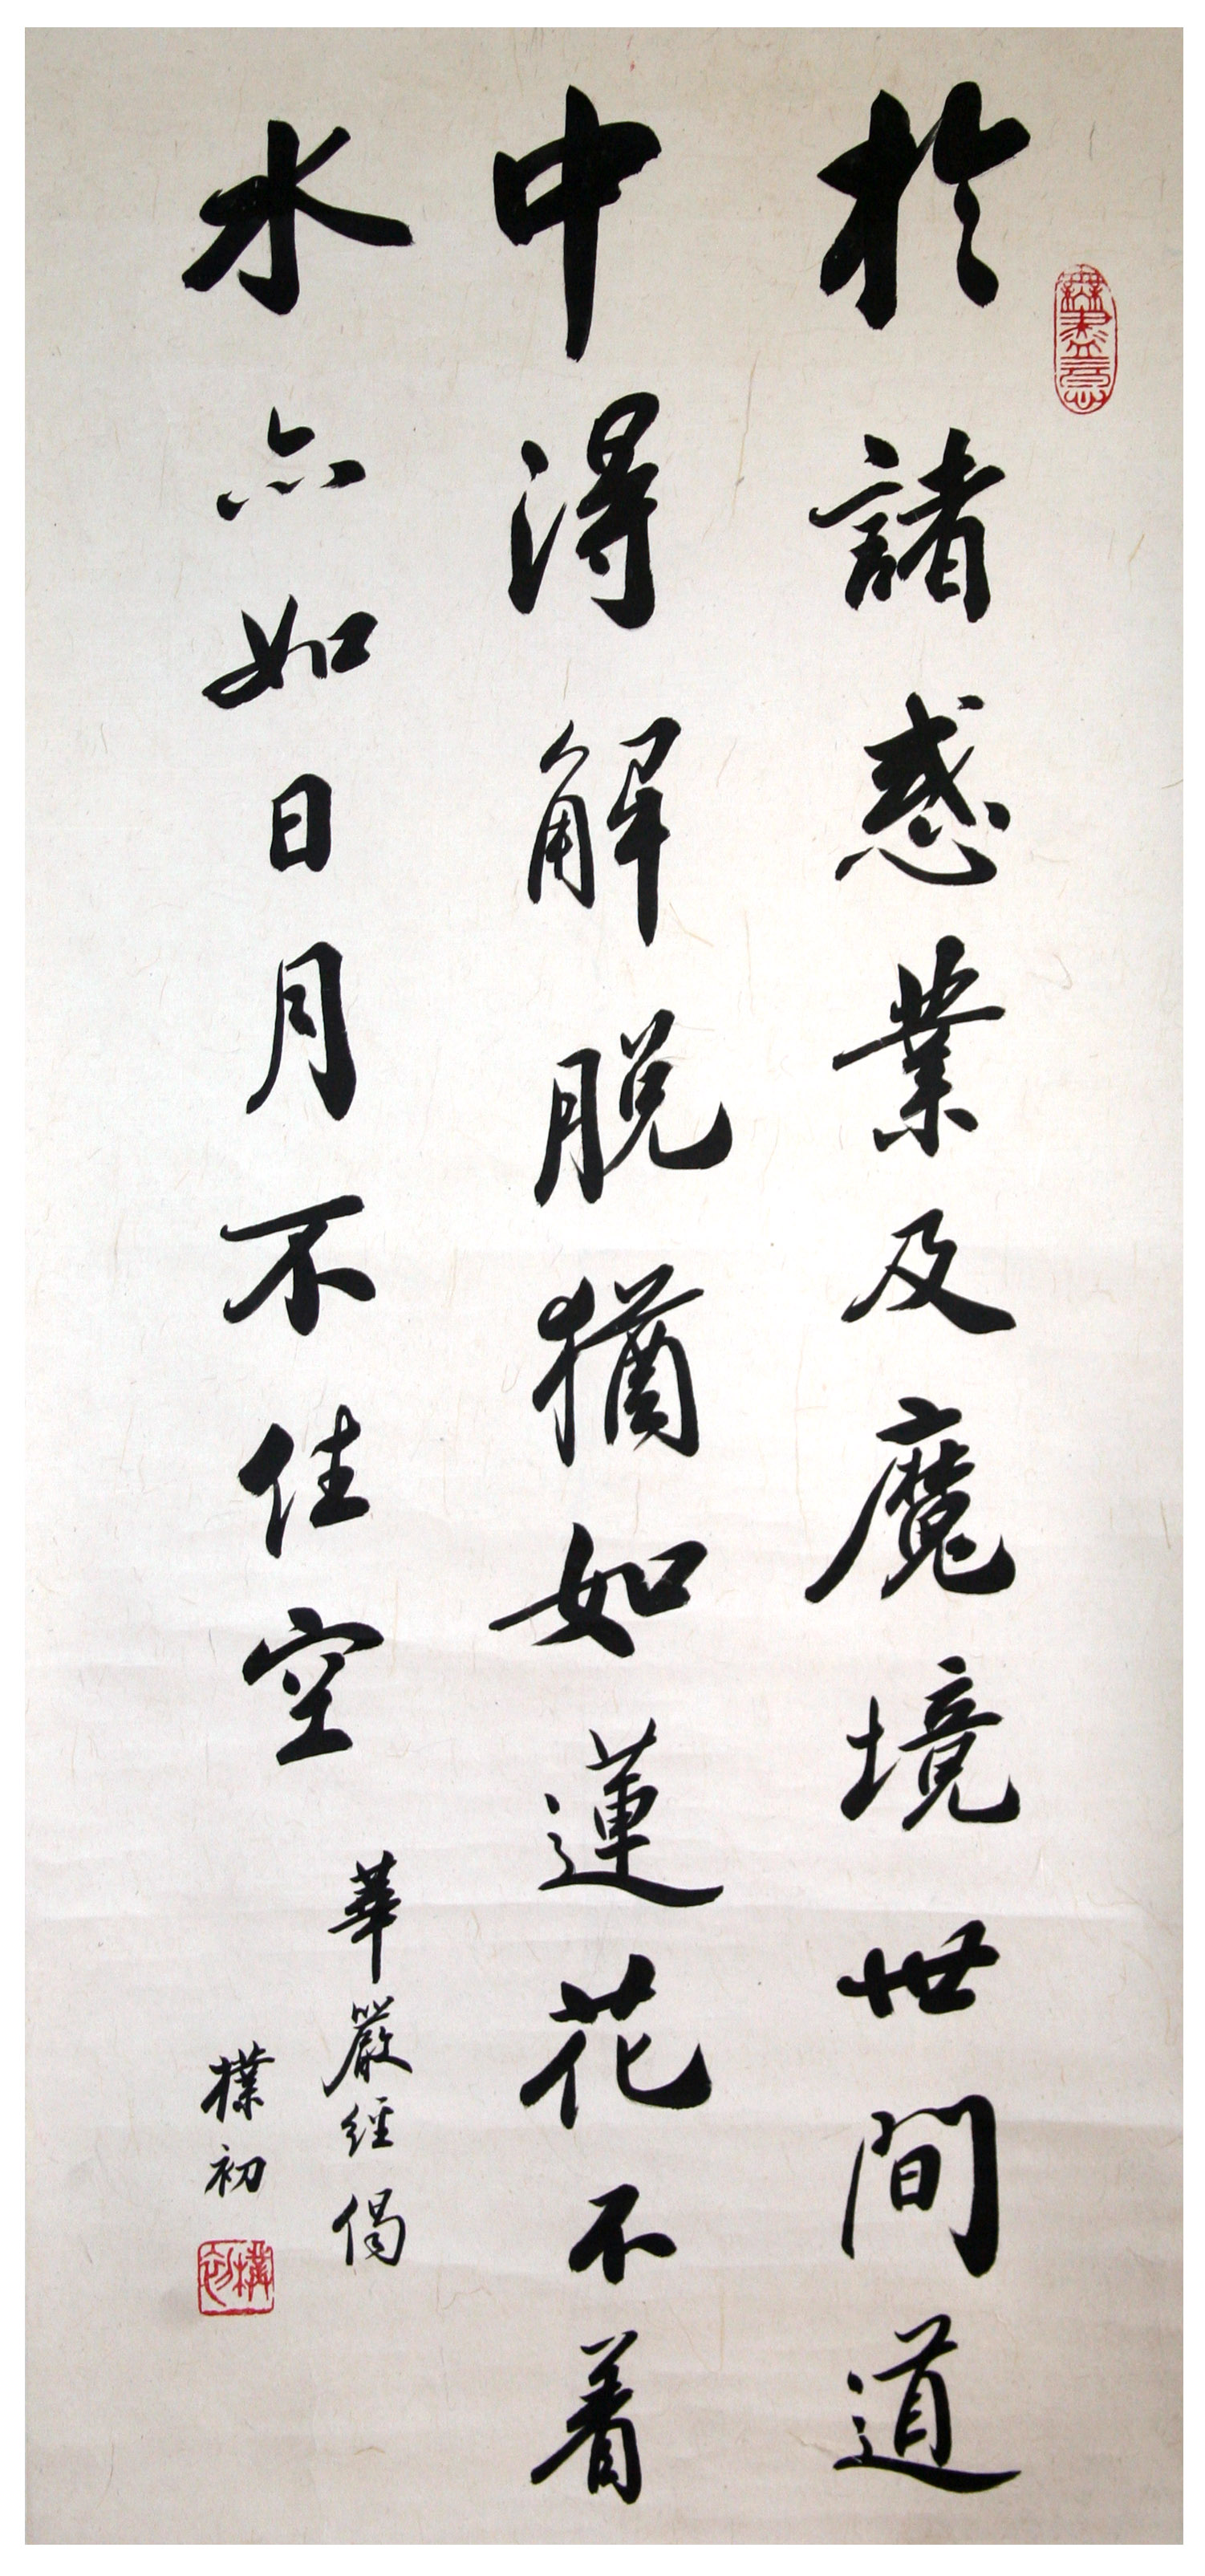 於諸惑業及魔境世間道
中得解脱猶如蓮花不着
水亦如日月不住空
華嚴經偈
樸初
無盡意
樸初